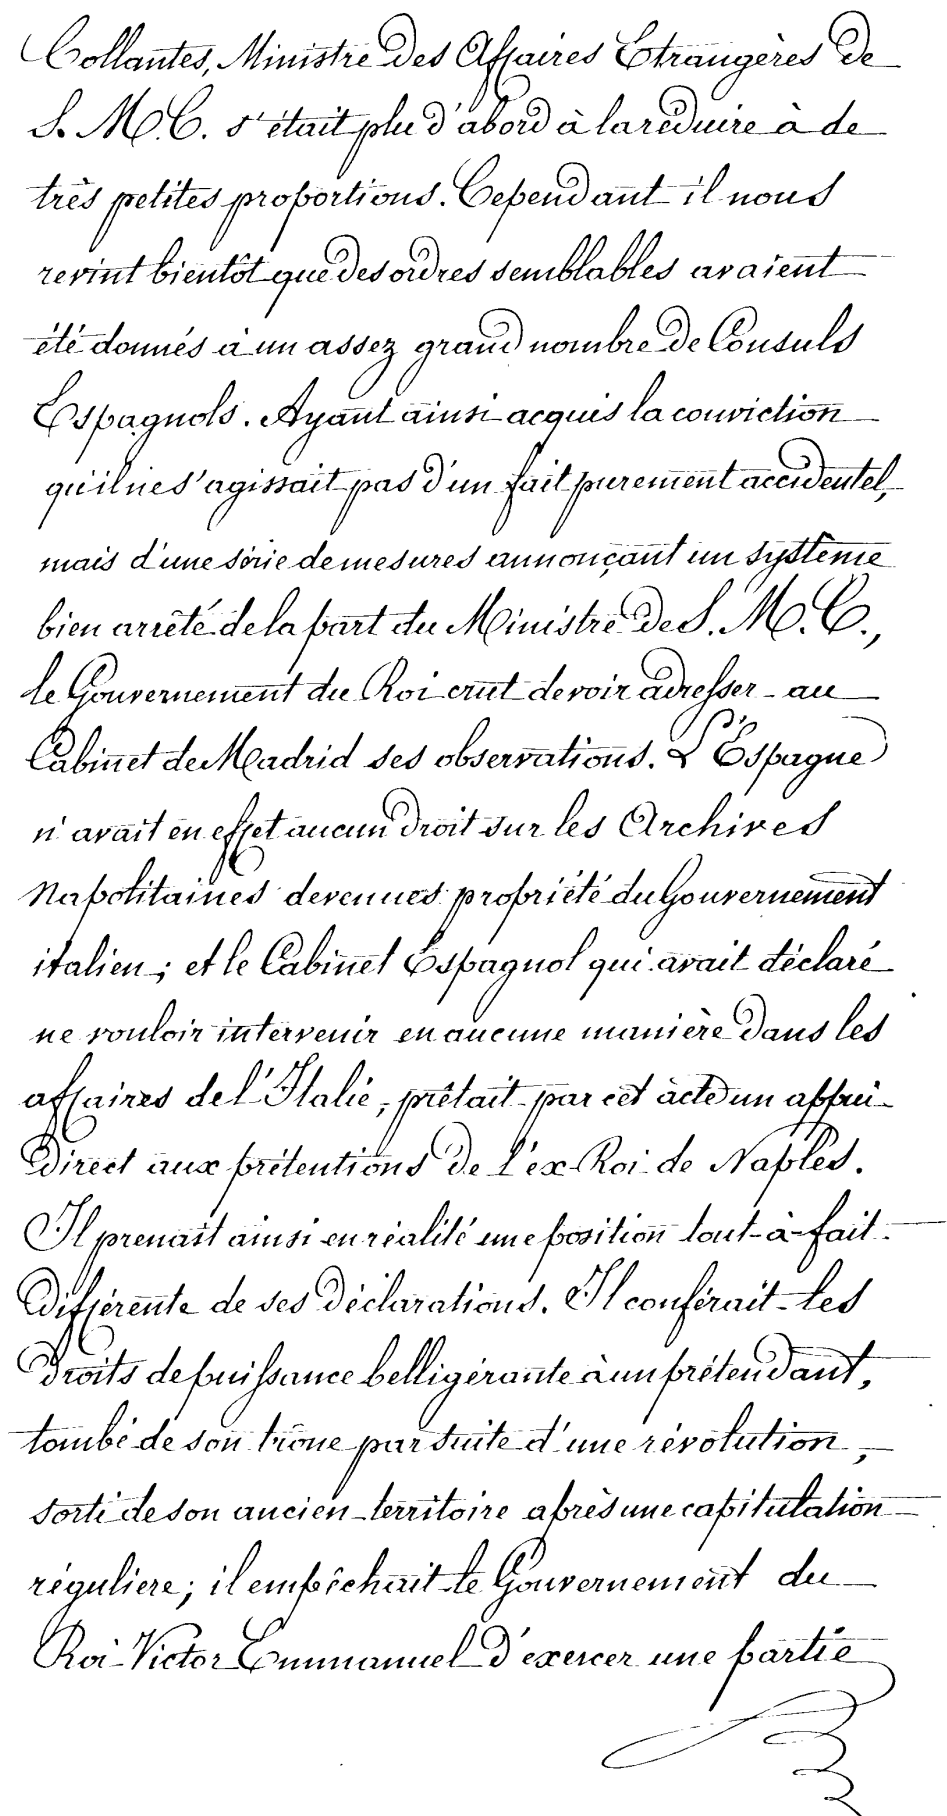 Collantes, Ministre des Affaires Etrangères de
S. M. C. s'était plu d'abord à la réduire à de
très petites proportions. Cependant il nous
revint bientôt que des ordres semblables avaient
été donnés à un assez grand nombre de Consuls
Espagnols. Ayant ainsi acquis la conviction
qu'il ne s'agissait pas d'un fait purement accidentel,
mais d'une série de mesures annonçant un système
bien arrêté de la part du Ministre de S. M. C.,
le Gouvernement du Roi crut devoir adresser au
Cabinet de Madrid ses observations. L'Espagne
n'avait en effet aucun droit sur les Archives
Napolitaines devenues propriété du Gouvernement
italien; et le Cabinet Espagnol qui avait déclaré
ne vouloir intervenir en aucune manière dans les
affaires de l'Italie, prêtait par cet acte un appui
direct aux prétentions de l'ex-Roi de Naples.
Il prenait ainsi en réalité une position tout-à-fait
différente de ses déclarations. Il conférait les
droits de puissance belligérante à un prétendant,
tombé de son trône par suite d'une révolution,
sorti de son ancien territoire après une capitulation
réguliere; il empêchait le Gouvernement du
Roi Victor Emmanuel d'exercer une partie